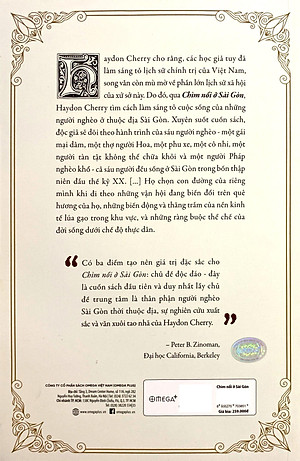 Haydon Cherry cho rằng, các học giả tuy đã
làm sáng tỏ lịch sử chính trị của Việt Nam,
song vẫn còn mù mờ về phần lớn lịch sử xã hội
của xứ sở này. Do đó, qua Chìm nổi ở Sài Gòn,
Haydon Cherry tìm cách làm sáng tỏ cuộc sống của những
người nghèo ở thuộc địa Sài Gòn. Xuyên suốt cuốn sách,
độc giả sẽ dõi theo hành trình của sáu người nghèo - một gái
mại dâm, một thợ người Hoa, một phu xe, một cô nhi, một
người tàn tật không thể chữa khỏi và một người Pháp
nghèo khổ - cả sáu người đều sống ở Sài Gòn trong bốn thập
niên đầu thế kỷ XX. [...] Họ chọn con đường của riêng
mình khi đi theo những vận hội đang biến đổi trên quê
hương của họ, những biến động và thăng trầm của nền kinh
tế lúa gạo trong khu vực, và những ràng buộc thể chế của
đời sống dưới chế độ thực dân.
“Có ba điểm tạo nên giá trị đặc sắc cho
Chìm nổi ở Sài Gòn: chủ đề độc đáo - đây
là cuốn sách đầu tiên và duy nhất lấy chủ
đề trung tâm là thân phận người nghèo
Sài Gòn thời thuộc địa, sự nghiên cứu xuất
sắc và văn xuôi tao nhã của Haydon Cherry.”
– Peter B. Zinoman,
Đại học California, Berkeley
CÔNG TY CỔ PHẦN SÁCH OMEGA VIỆT NAM (OMEGA PLUS)
www.omegaplus.vn
OMEGA+
Chìm nổi ở Sài Gòn
Giá bìa: 259.000đ